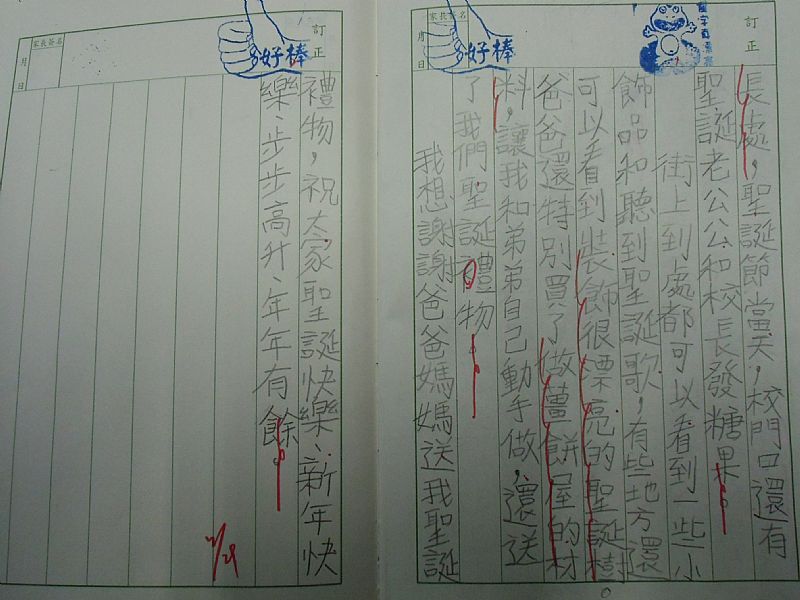 訂正
家長簽名
月
日
好棒
長處，聖誕節當天，校門口還有
聖誕老公公和校長發糖果。
街上到處都可以看到一些小
飾品和聽到聖誕歌，有些地方還
可以看到裝飾很漂亮的聖誕樹
爸爸還特別買了做薑餅屋的材
料，讓我和弟弟自己動手做，還送
了我們聖誕禮物。
我想謝謝爸爸媽媽送我聖誕
訂正
家長簽名
月
日
好棒
禮物，祝大家聖誕快樂、新年快
樂、步步高升、年年有餘。